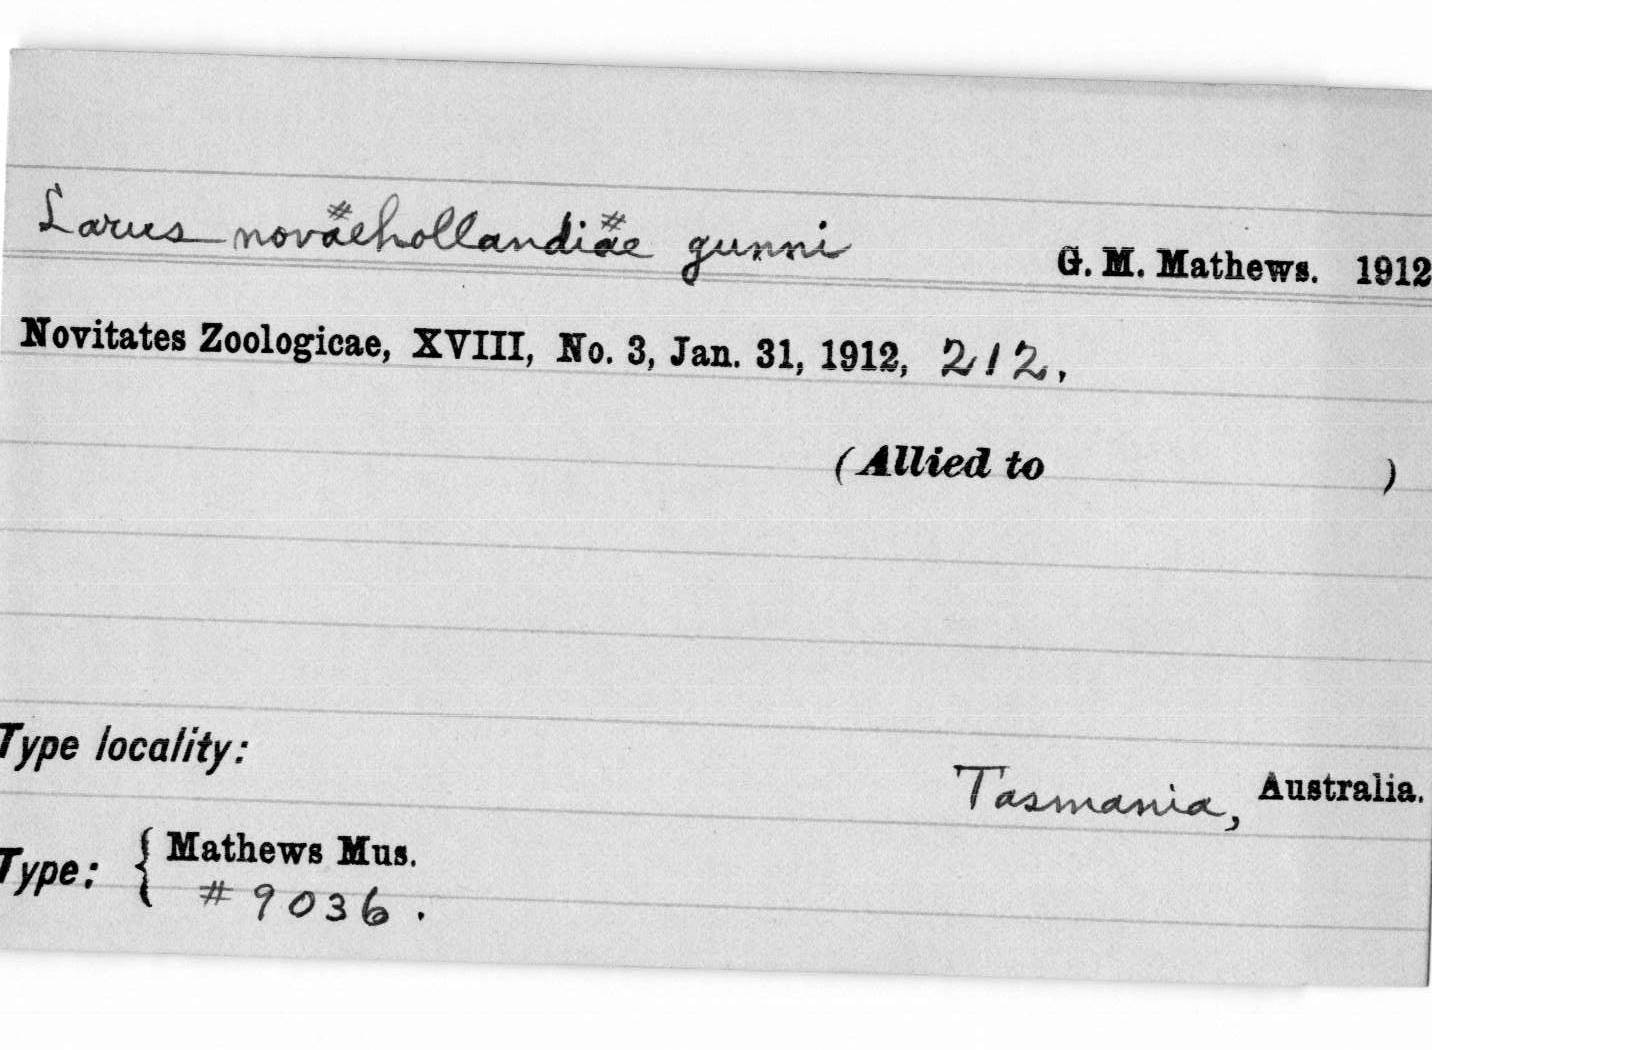 Larus novaehollandiae gunni G. M. Mathews. 1912
Novitates Zoologicae, XVIII, No. 3, Jan. 31, 1912, 212,
(Allied to )
Type locality:
Tasmania, Australia.
Type: { Mathews Mus.
# 9036.